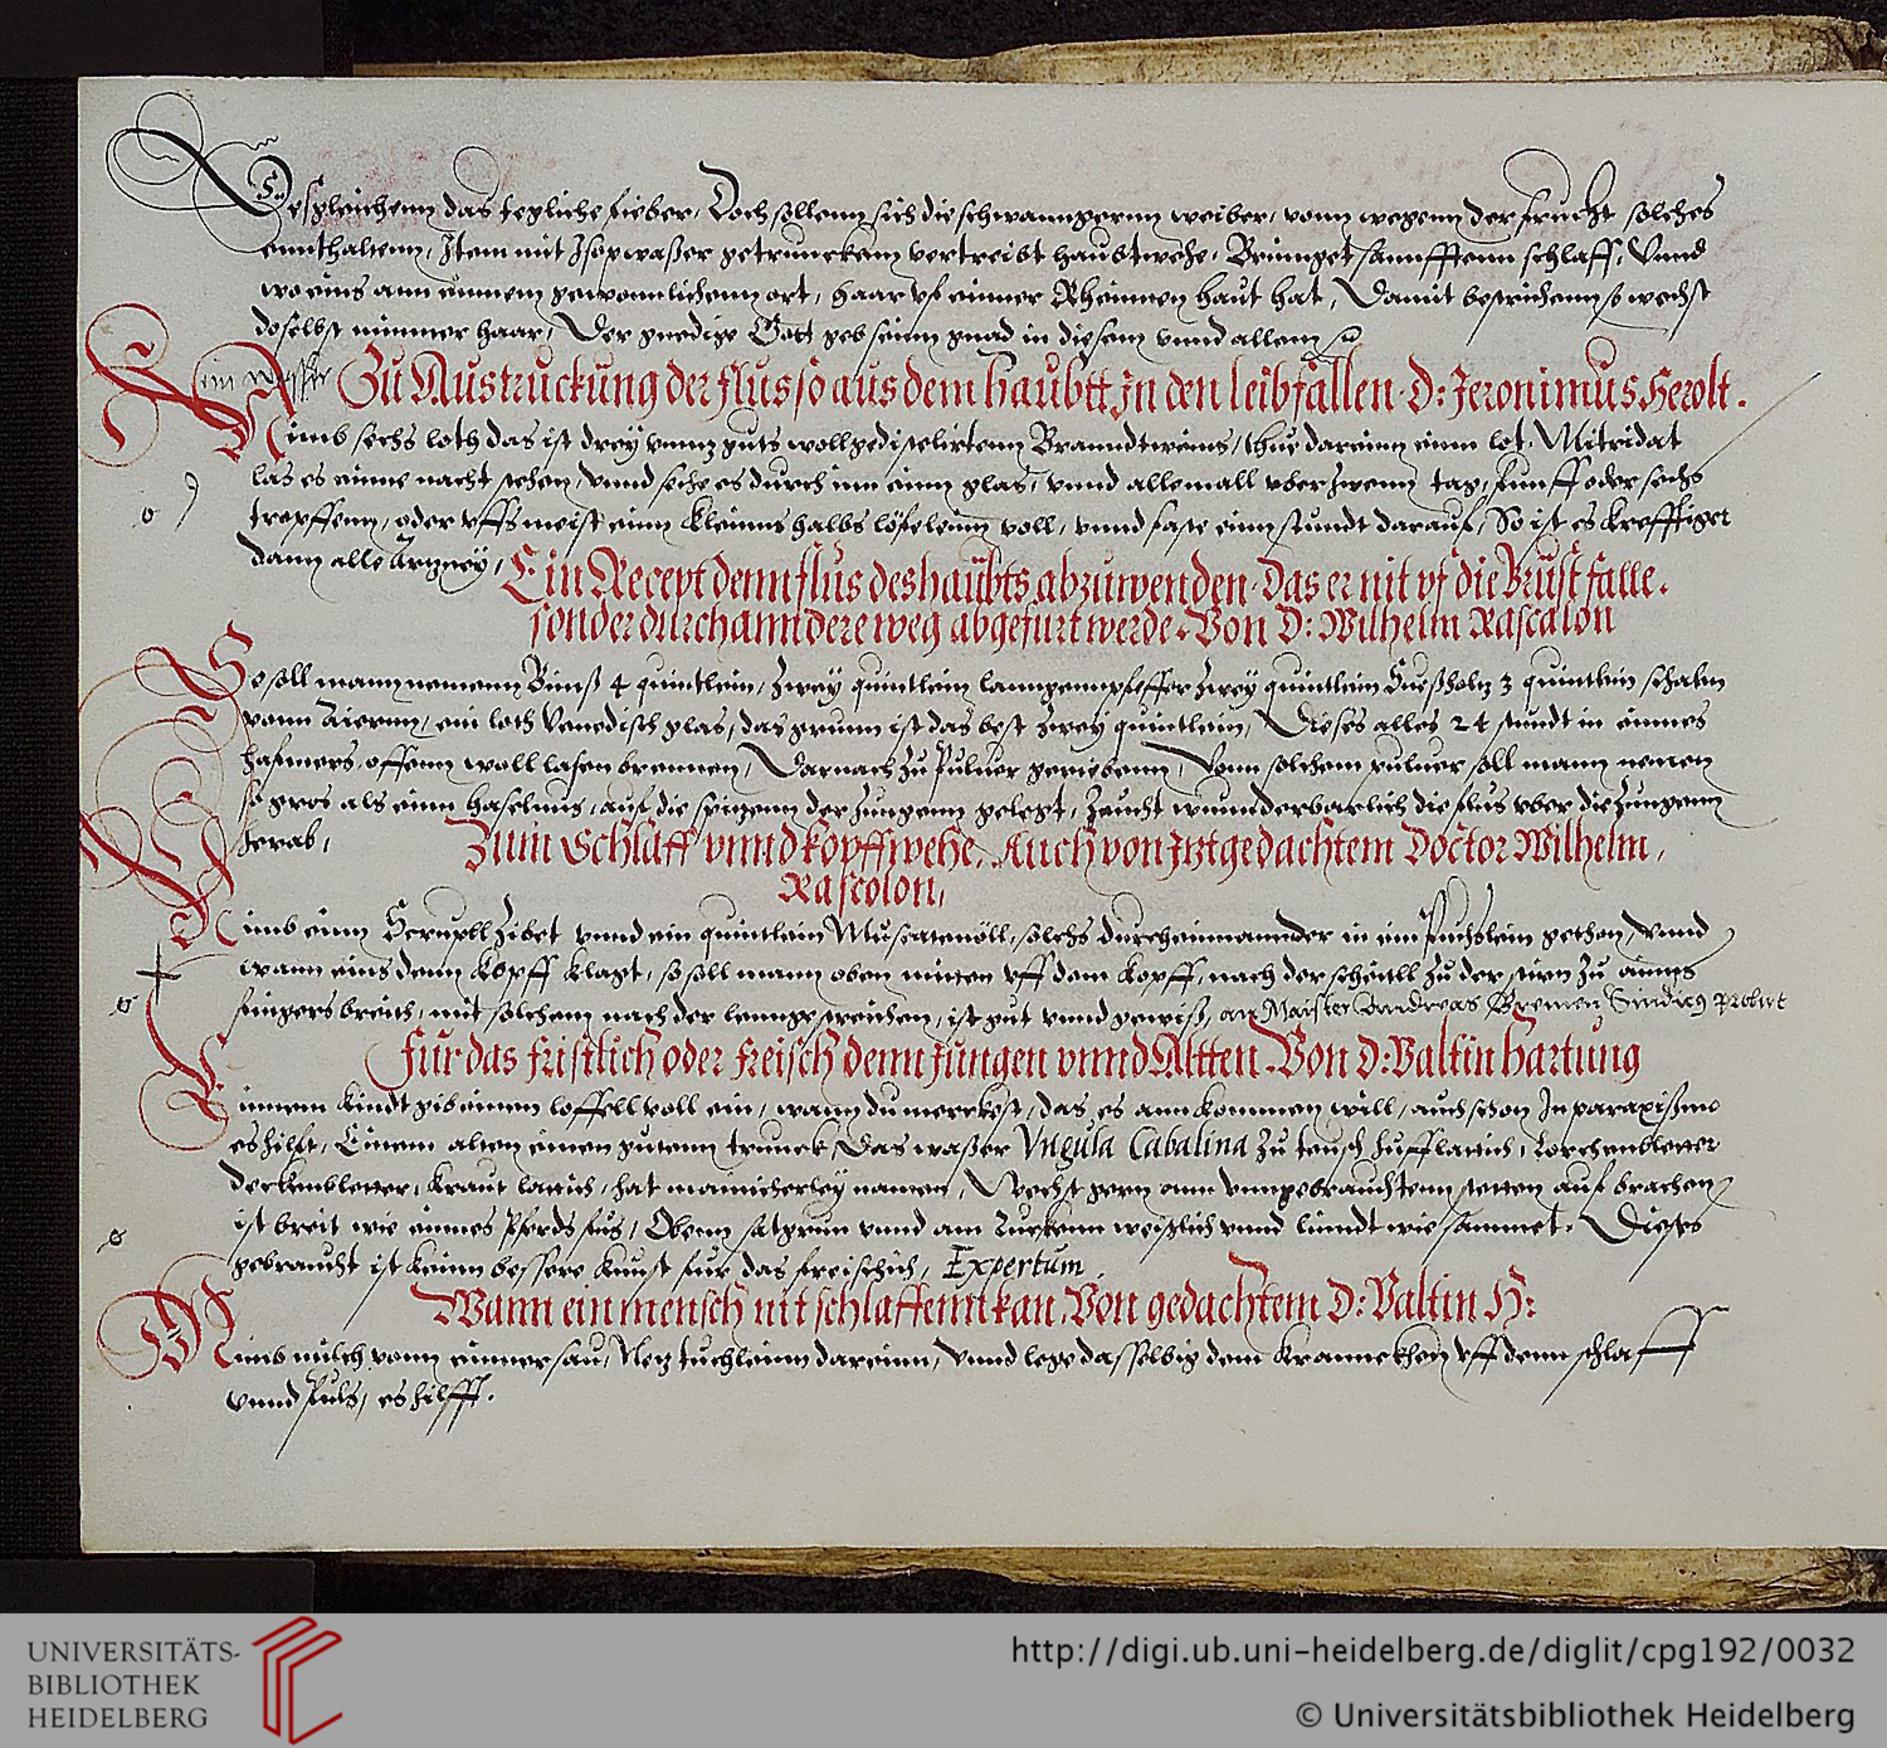 Desgleichenn das tegliche fieber, Doch sollenn sich die schwanngernn weiber, vonn wegenn der frucht solches
ennthaltenn, Item mit Isopwaßer getrunckenn vertreibt haubtwehe, Bringet sannfftenn schlaff, Vnnd
wo eins ann einnem gewonnlichenn ort, haar vf einner Rheinnen haut hat, Damit bestrichenn so wechst
doselbst nimmer haar, Der gnedige Gott geb seinn gnad in diesem vnnd allem
Ein Wasser Zu Austruckung der flus so aus dem haubtt In den leib fallen. D: Jeronimus Herolt.
Nimb sechs loth das ist drey vnnz guts wollgedistelirtenn Branndtweins, thue dareinn einn lot Mitridat
las es einne nacht stehen, vnnd seihe es durch inn einn glas, vnnd allemall vber zwenn tag, funff oder sechs
tropffenn, oder vffs meist einn kleinns halbs löfeleinn voll, vnnd faste einn stundt darauf, So ist es krefftiger
dann alle Artzney,
Ein Recept denn flus des haubts abzuwenden. Das er nit vf die Brust falle.
sonder durch anndere weg abgefurt werde. Von D: Wilhelm Rascalon
So soll mann nemenn Bimß 4 quintlein, zwey quintlein lanngenn pfeffer zwey quintlein Sueßholtz 3 quintlein schaln
vonn Aiernn, ein loth Venedisch glas, das grunn ist das best zwey quintlein, Dieses alles 24 stundt in einnes
hafners offenn woll lasen brennen, Darnach zu Puluer geriebenn, Vonn solchem puluer soll mann nemen
so gros als einn haselnus, auf die spitzenn der zungenn gelegt, zeucht wunnderbarlich die flus vber die zungenn
herab,
Zum Schlaff vnnd kopffwehe. Auch von Jtztgedachtem Doctor Wilhelm,
Rascolon,
Nimb einn Scrupll Zibet vnnd ein quintlein Muscatenöll, solchs durcheinnannder in ein Puchslein gethon, Vnnd
wann eins denn kopff klagt, so soll mann oben mitten vff dem kopff, nach der scheitll zu der stirn zu einns
fingers breith, mit solchem nach der lennge streichen, ist gut vnnd gewiß, an Maister Andreas Bremen Sindicq Probirt
Fur das fristlich oder freisch denn Jungen vnnd Altten. Von D: Valtin Hartung
Einnem kindt gib einnen loffell voll ein, wann du merckest, das es ann kommen will, auch schon In paraxißmo
es hilft, Einem alten einen gutenn trunck, Das waßer Vngula Cabalina zu teusch hufflattich,
kraut lattich, hat mannicherley namen, Wechst gern ann vnngebrauchtenn stetten auf brachen
ist breit wie einnes Pferds fus, Obenn satgrun vnnd am Ruckenn weißlich vnnd linndt wie sammet. Dieses
gebraucht ist keinn bessere kunst fur das freischich, Expertum.
Wann ein mensch nit schlaffenn kan. Von gedachtem D: Valtin H:
Nimb milch vonn einner sau, Netz tuchleinn dareinn, Vnnd lege dasselbig dem kranneckhen vff denn schlaff
vnnd Puls, es hilfft.
UNIVERSITÄTS-
BIBLIOTHEK
HEIDELBERG
http://digi.ub.uni-heidelberg.de/diglit/cpg192/0032
© Universitätsbibliothek Heidelberg